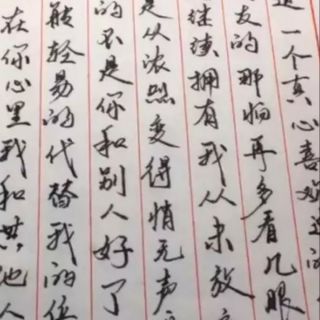 一个真心喜欢过的
友的那怕再多看几眼
继续拥有我从未放
是从浓烈变得悄无声
的不是你和别人好了
般轻易的代替我的位
在你心里我和其他人